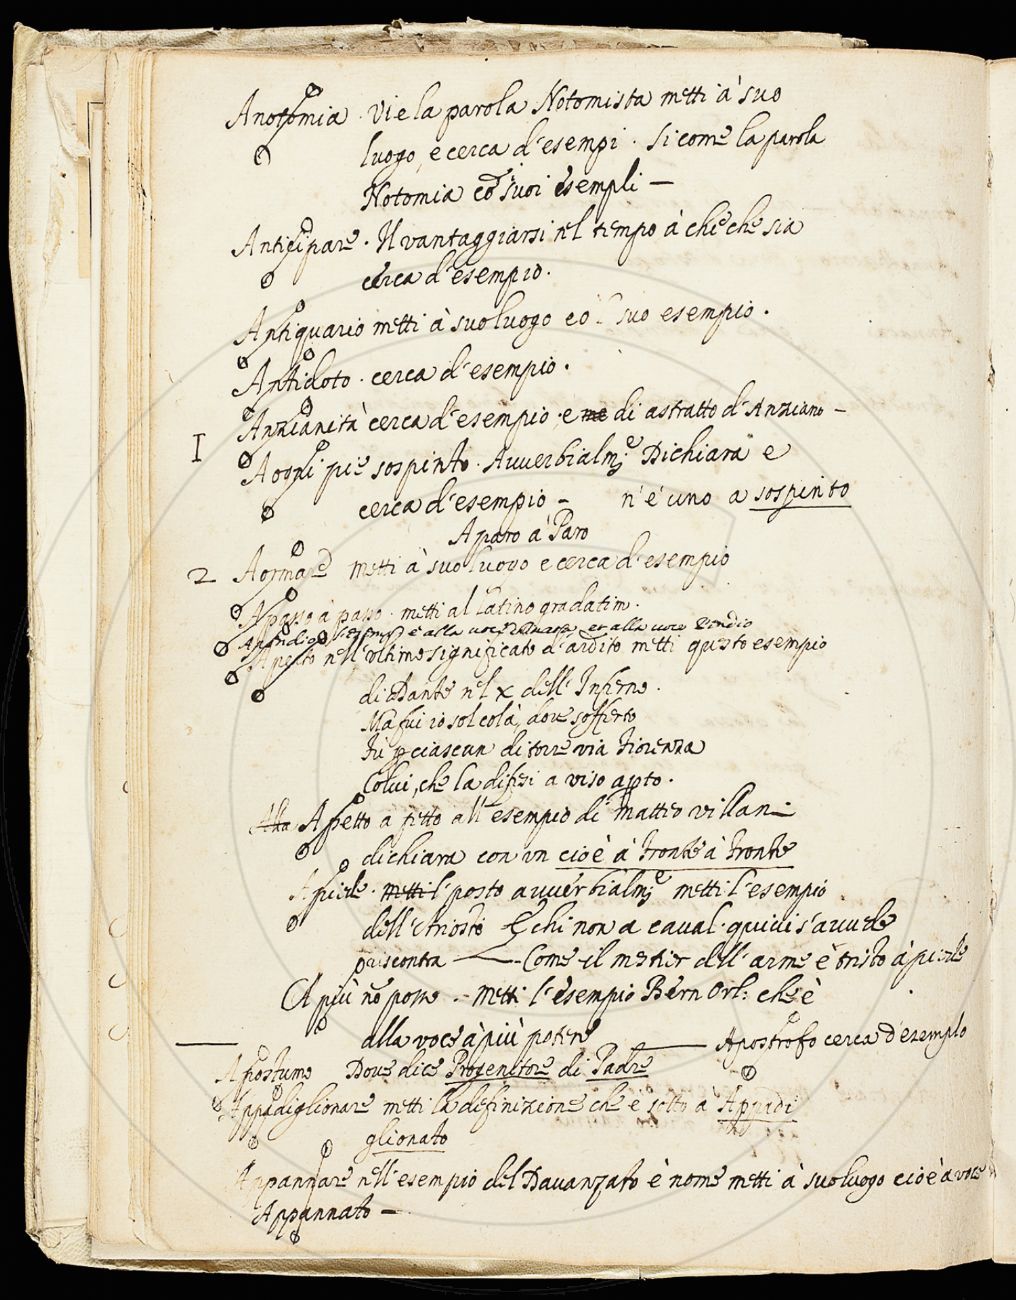 Anotomia. Vi è la parola Notomista metti à suo
luogo, e cerca d'esempi. Si come la parola
Notomia co' suoi esempli —
Anticipare. Il vantaggiarsi nel tempo à che che sia
cerca d'esempio.
Antiquario metti à suo luogo co'l suo esempio.
Antidoto. cerca d'esempio.
Anzianità cerca d'esempio. e me di astratto d'Anziano —
I
A ogni piè sospinto. Avverbialm.e Dichiara e
cerca d'esempio — n'è uno a sospinto
A paro à Paro
2 Aormare metti à suo luogo e cerca d'esempio
A passo a passo. metti al latino gradatim.
Aperto nell'ultimo significato d'ardito metti questo esempio
di Dante nel X dell'Inferno.
Ma fui io sol colà, dove sofferto
Fù p ciascun di torre via Fiorenza
Colui, che la difesi a viso apto.
A petto a petto all'esempio di Matteo Villani
dichiara con un cioè à fronte à fronte
A piede. metti l' posto avverbialm.e metti l'esempio
dell'Ariosto chi non a caval. quivi s'avvede
riscontra — Come il mestier dell'arme è tristo à piede
Al più nō posso — Metti l'esempio Bern Orl: che è
alla voce à più potere — Apostrofo cerca d'esemplo
Apostumo Dove dice Progenitore di Padre
Appadiglionare metti la definizione che è sotto à Appadi
glionato
Appannare nell'esempio del Davanzato è nome metti à suo luogo cioè à voce
Appannato —